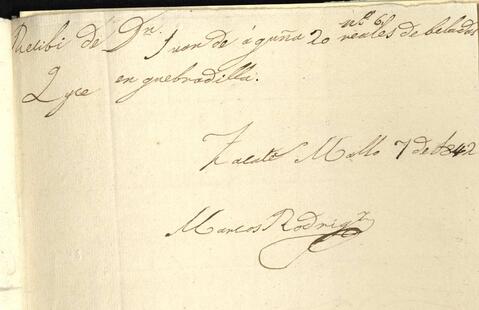 nº 6
Recibi de Dn. Juan de aguña 20 reales de beladas
Qce en quebradilla.
Zacate Mallo 7 de 1842
Marcos Rodrigz